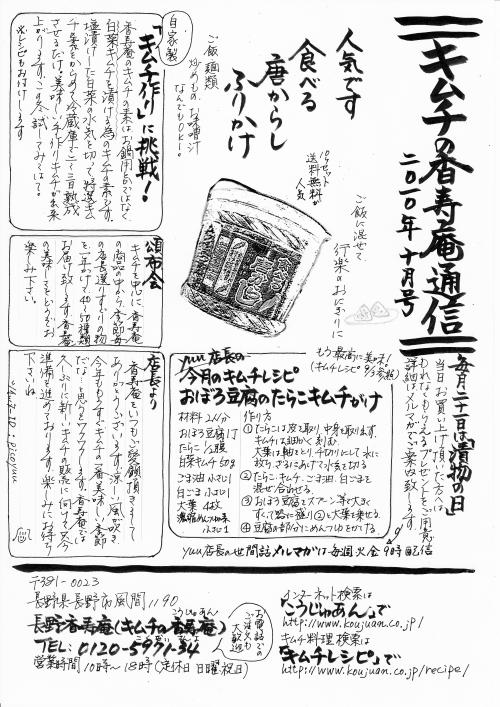 キムチの香寿庵通信
二〇一〇年十月号
毎月二十一日は漬物の日
当日お買い上げ頂いた方へは
もれなくもらえるプレゼントをご用意
詳細はメルマガでご案内致します
人気です
食べる
唐からし
ふりかけ
ご飯 麺類
炒めもの お味噌汁
なんでもOK!
送料無料が
人気
ご飯に混ぜて
行楽のおにぎりに
もう最高に美味!
自家製
「キムチ作り」に挑戦!
香寿庵のキムチの素はお鍋用ではなく
白菜キムチを漬ける為のキムチの素です
塩漬けした白菜の水気を切って、特選キム
チの素をからめて、冷蔵庫で二〜三日熟成
させるだけ。美味しい手作りキムチが出来
上がります。この冬、試してみては?
※レシピもお付けします
頒布会
キムチを中心に、香寿庵
の商品の中から、季節毎
の店長選りすぐりの物
を一年かけて40〜50種類
お届け致します。香寿庵
の美味しさをどうぞお
楽しみ下さい。
店長より
香寿庵をいつもご愛顧頂きまして
ありがとうございます。涼しい風が吹き
今年ももうすぐキムチの一番美味しい季節
だな…と思うとワクワクします。香寿庵では
久しぶりに新しいキムチの販売に向けて只今
準備を進めております。楽しみにお待ち
下さいね
yuu店長の
今月のキムチレシピ
おぼろ豆腐のたらこキムチがけ
材料 2人分
おぼろ豆腐 1丁
たらこ 1/2腹
白菜キムチ 50g
ごま油 小さじ1
白ごま 小さじ1
大葉 4枚
濃縮めんつゆの素
小さじ1
作り方
①たらこは皮を取り、中身を取ります。
キムチは細かく刻む。
大葉は軸をとり、千切りにして水に
放ち、ざるにあけて水を切る
②たらこ、キムチ、ごま油、白ごまを
混ぜ合わせる。
③おぼろ豆腐をスプーン等で大きく
すくって器に盛り②と大葉を乗せる
④豆腐の部分にめんつゆをかける
yuu店長の世間話メルマガは毎週火、金 9時配信
〒381-0023
長野県長野市風間1190
長野香寿庵(キムチの香寿庵)
こうじゅあん
TEL: 0120-5971-34
営業時間 10時〜18時(定休日 日曜、祝日)
お電話での
ご注文も
大歓迎
インターネット検索は
「こうじゅあん」で
http://www.koujuan.co.jp/
キムチ料理検索は
「キムチレシピ」で
http://www.koujuan.co.jp/recipe/